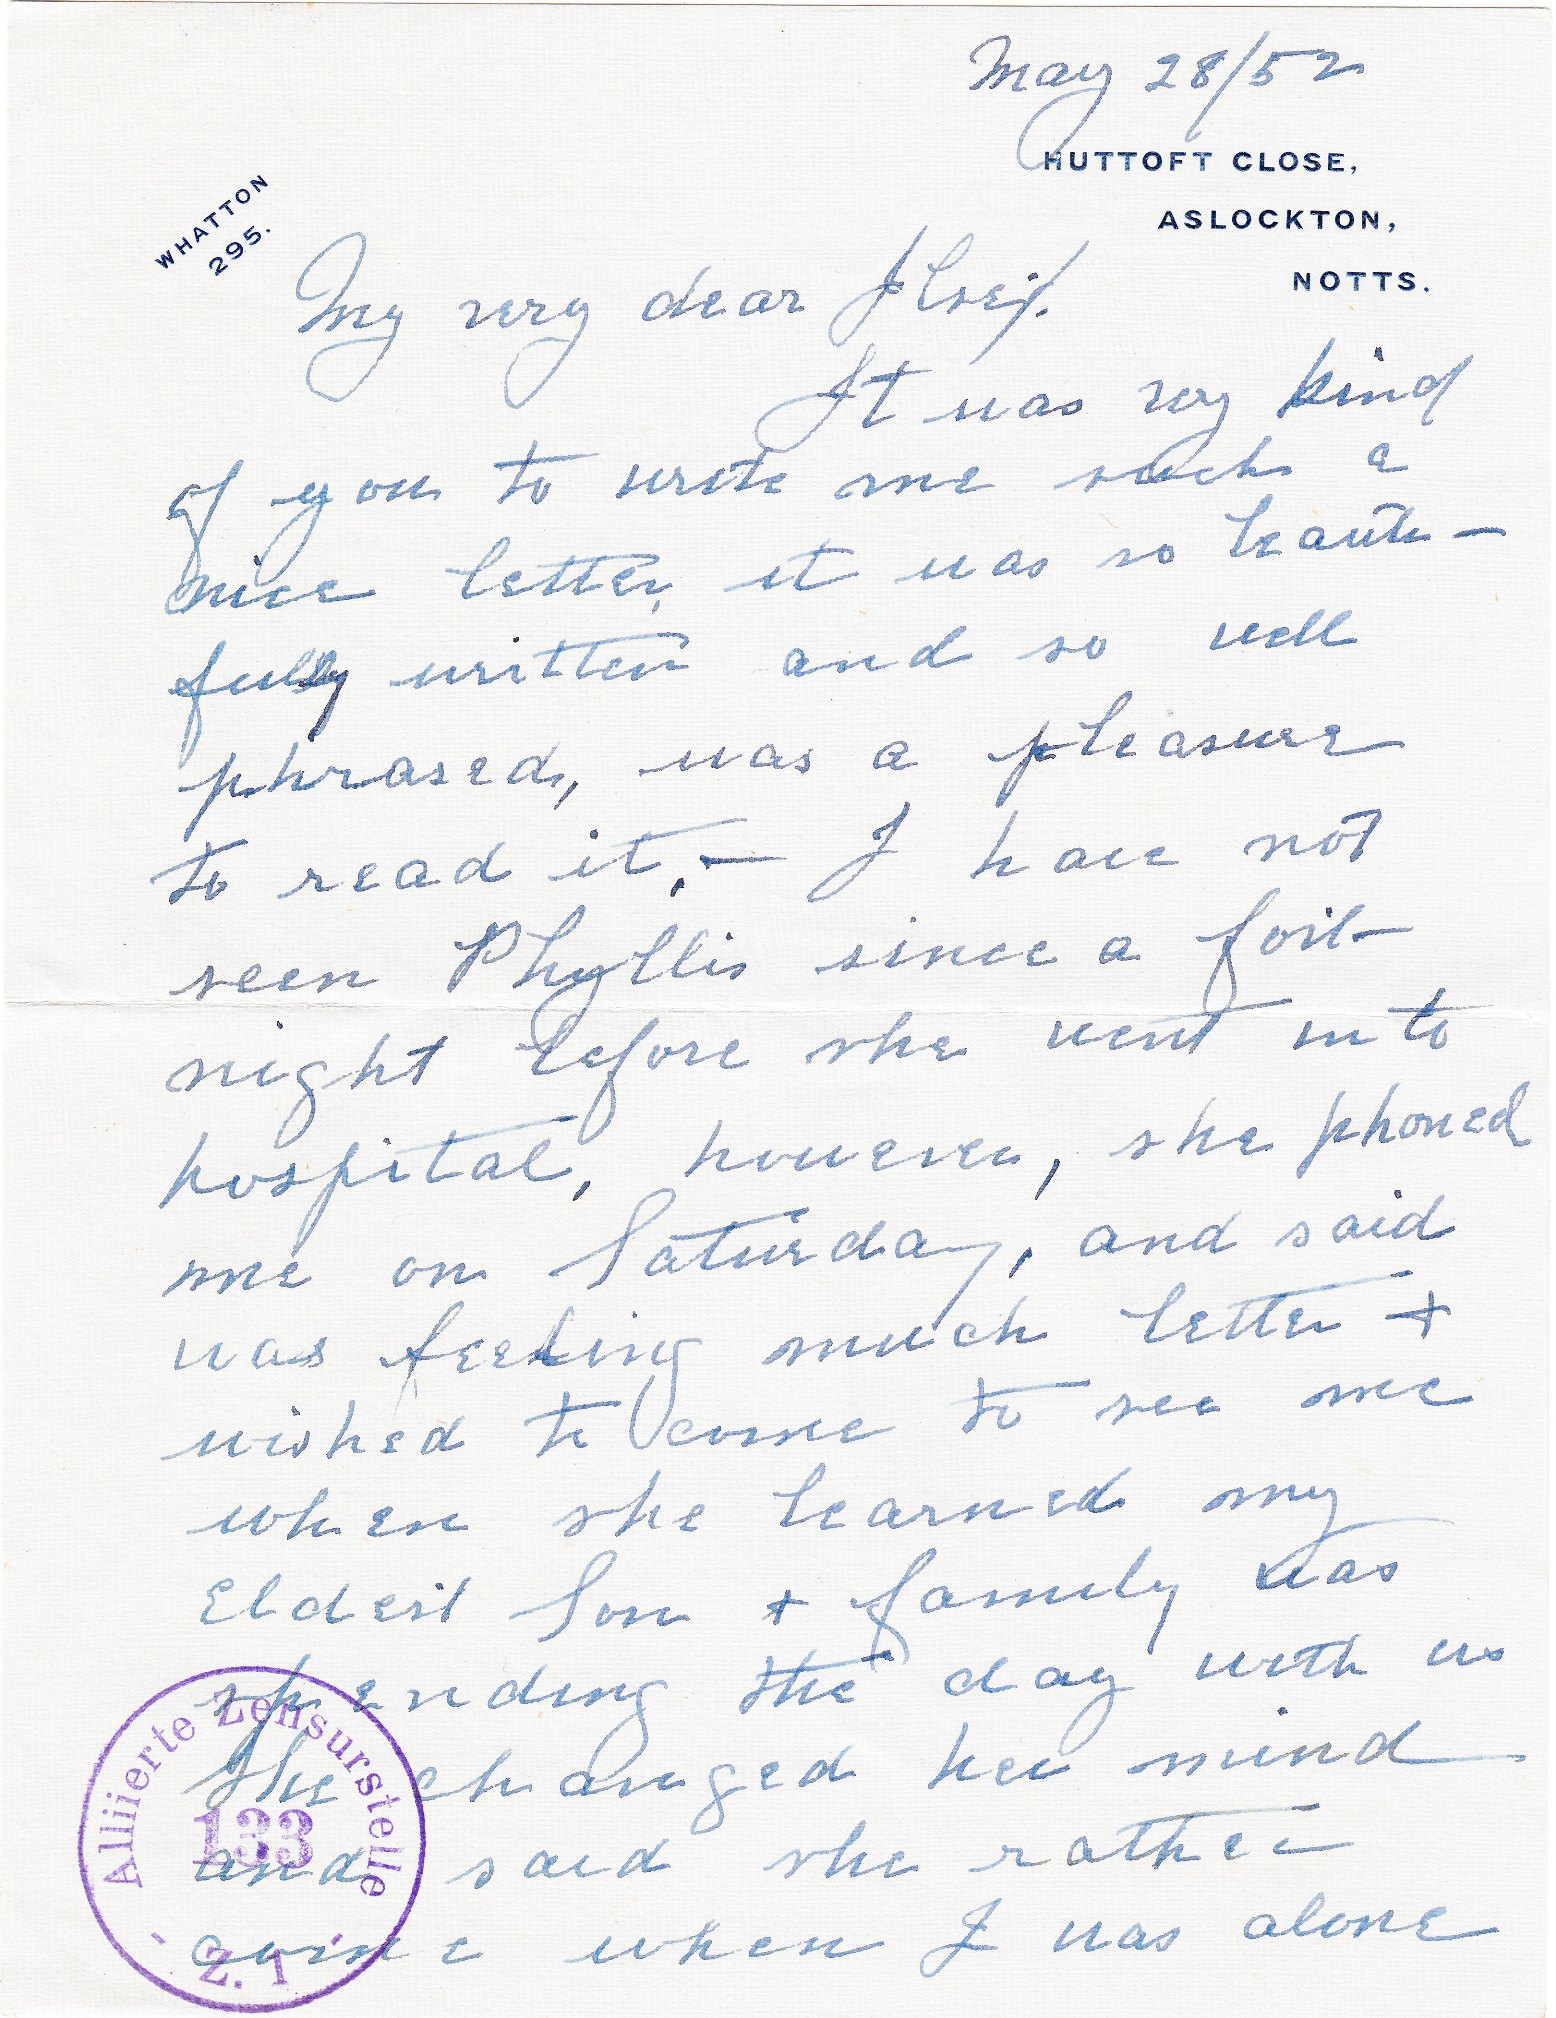 May 28/52
HUTTOFT CLOSE,
ASLOCKTON,
NOTTS.
WHATTON
295.
My very dear Ilse,
It was very kind
of you to write me such a
nice letter, it was so beauti-
fully written and so well
phrased, was a pleasure
to read it. — I have not
seen Phyllis since a fort-
night before she went into
hospital, however, she phoned
me on Saturday, and said
was feeling much better +
wished to come to see me
when she learned my
Eldest Son + family was
spending the day with us
She changed her mind
and said she rather
come when I was alone
Alliierte Zensurstelle
133
Z. 1